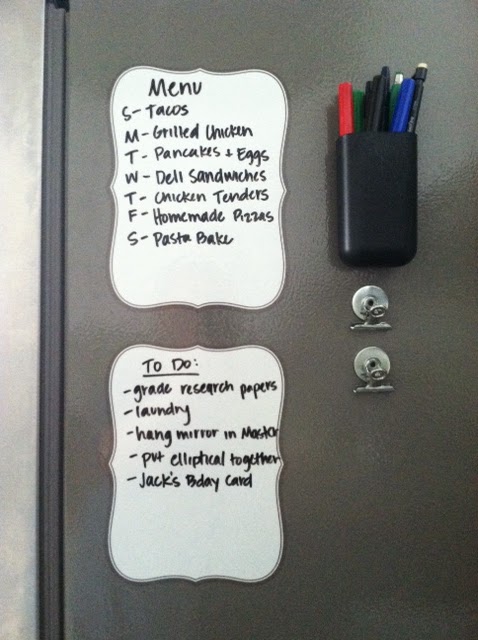 Menu
S- Tacos
M- Grilled Chicken
T- Pancakes + Eggs
W- Deli Sandwiches
T- Chicken Tenders
F- Homemade Pizzas
S- Pasta Bake
To Do:
-grade research papers
-laundry
-hang mirror in Master
-put elliptical together
-Jack's Bday Card